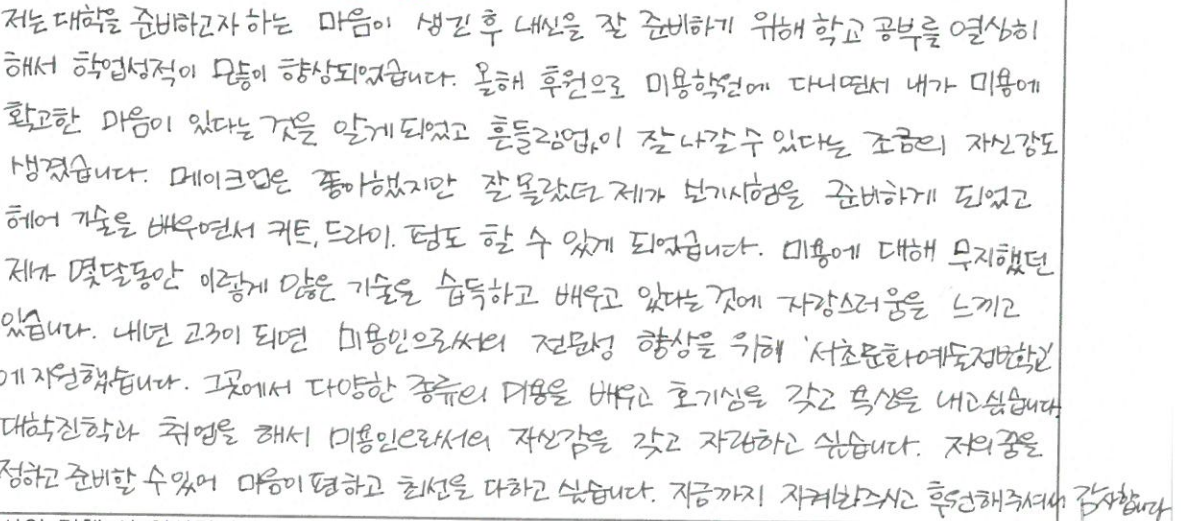 저는 대학을 준비하고자 하는 마음이 생긴 후 내신을 잘 준비하기 위해 학교 공부를 열심히
해서 학업성적이 많이 향상되었습니다. 올해 후원으로 미용학원에 다니면서 내가 미용에
확고한 마음이 있다는 것을 알게 되었고 흔들림없이 잘 나갈 수 있다는 조금의 자신감도
생겼습니다. 메이크업은 좋아했지만 잘 몰랐던 제가 필기시험을 준비하게 되었고
헤어 기술을 배우면서 커트, 드라이, 펌도 할 수 있게 되었습니다. 미용에 대해 무지했던
제가 몇달동안 이렇게 많은 기술을 습득하고 배우고 있다는 것에 자랑스러움을 느끼고
있습니다. 내년 고3이 되면 미용인으로써의 전문성 향상을 위해 '서초문화예술정보학교'
에 지원했습니다. 그곳에서 다양한 종류의 미용을 배우고 호기심을 갖고 욕심을 내고 싶습니다.
대학진학과 취업을 해서 미용인으로서의 자신감을 갖고 자립하고 싶습니다. 저의 꿈을
정하고 준비할 수 있어 마음이 편하고 최선을 다하고 싶습니다. 지금까지 지켜봐주시고 후원해주셔서 감사합니다